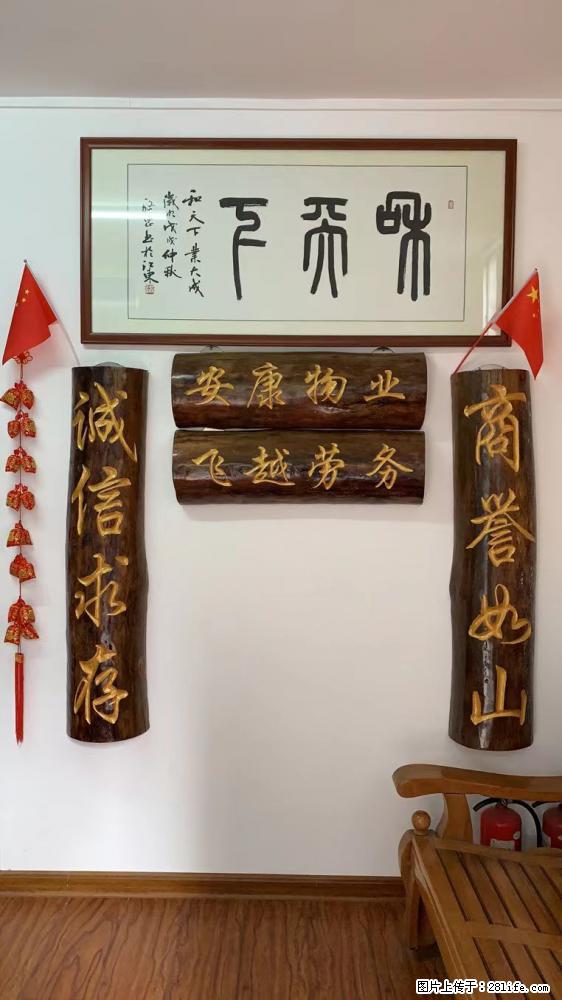 和天下
和天下業大成
安康物业
飞越劳务
商誉如山
诚信求存
图片上传于：281life.com